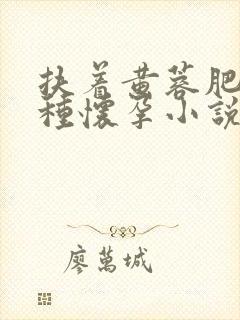 扶着黄蓉肥
种怀孕小说
廖万城